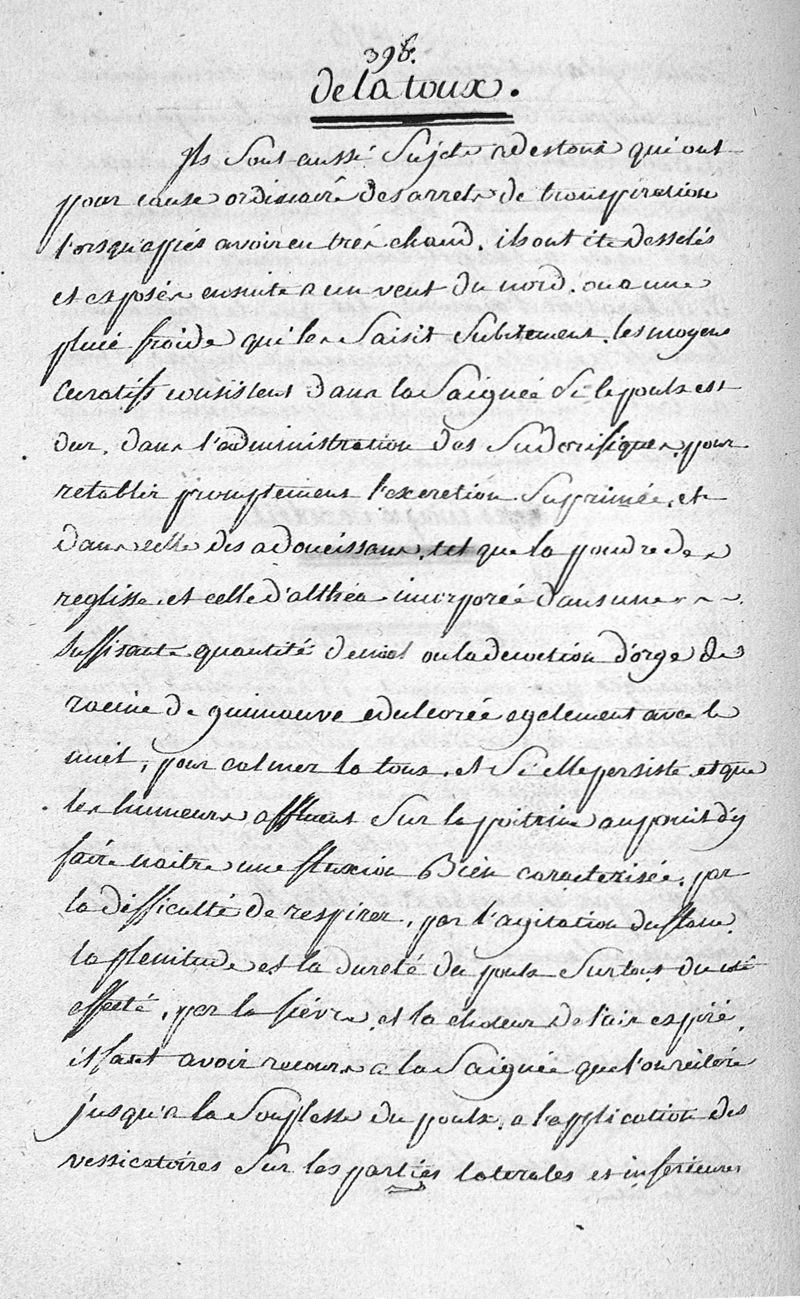 398.
De la toux.
Ils Sont aussi Sujets a des toux qui ont
pour cause ordinaire des arrets de transpiration
lorsqu'après avoir eu très chaud, ils ont été dessélés
et exposés ensuite a un vent du nord, ou a une
pluie froide qui les Saisit Subitement. les moyens
Curatifs consistent dans la Saignée Si le pouls est
dur, dans l'administration des Sudorifiques, pour
retablir promptement l'excretion Suprimée, et
dans celle des adoucissans, tel que la poudre de
reglisse, et celle d'althéa incorporée dans une
Suffisante quantité de miel ou la decoction d'orge de
racine de guimauve edulcorée egalement avec le
miel, pour calmer la toux, et Si elle persiste, et que
les humeurs affluent Sur la poitrine au point d'y
faire naitre une fluxion Bien caracterisée, par
la difficulté de respirer, par l'agitation du flanc,
la plenitude et la dureté du pouls Surtout du coté
affecté, par la fièvre, et la chaleur de l'air expiré,
il faut avoir recours a la Saignée que l'on reitére
jusqu'a la Souplesse du pouls, a l'application des
vessicatoires Sur les parties laterales et inferieures